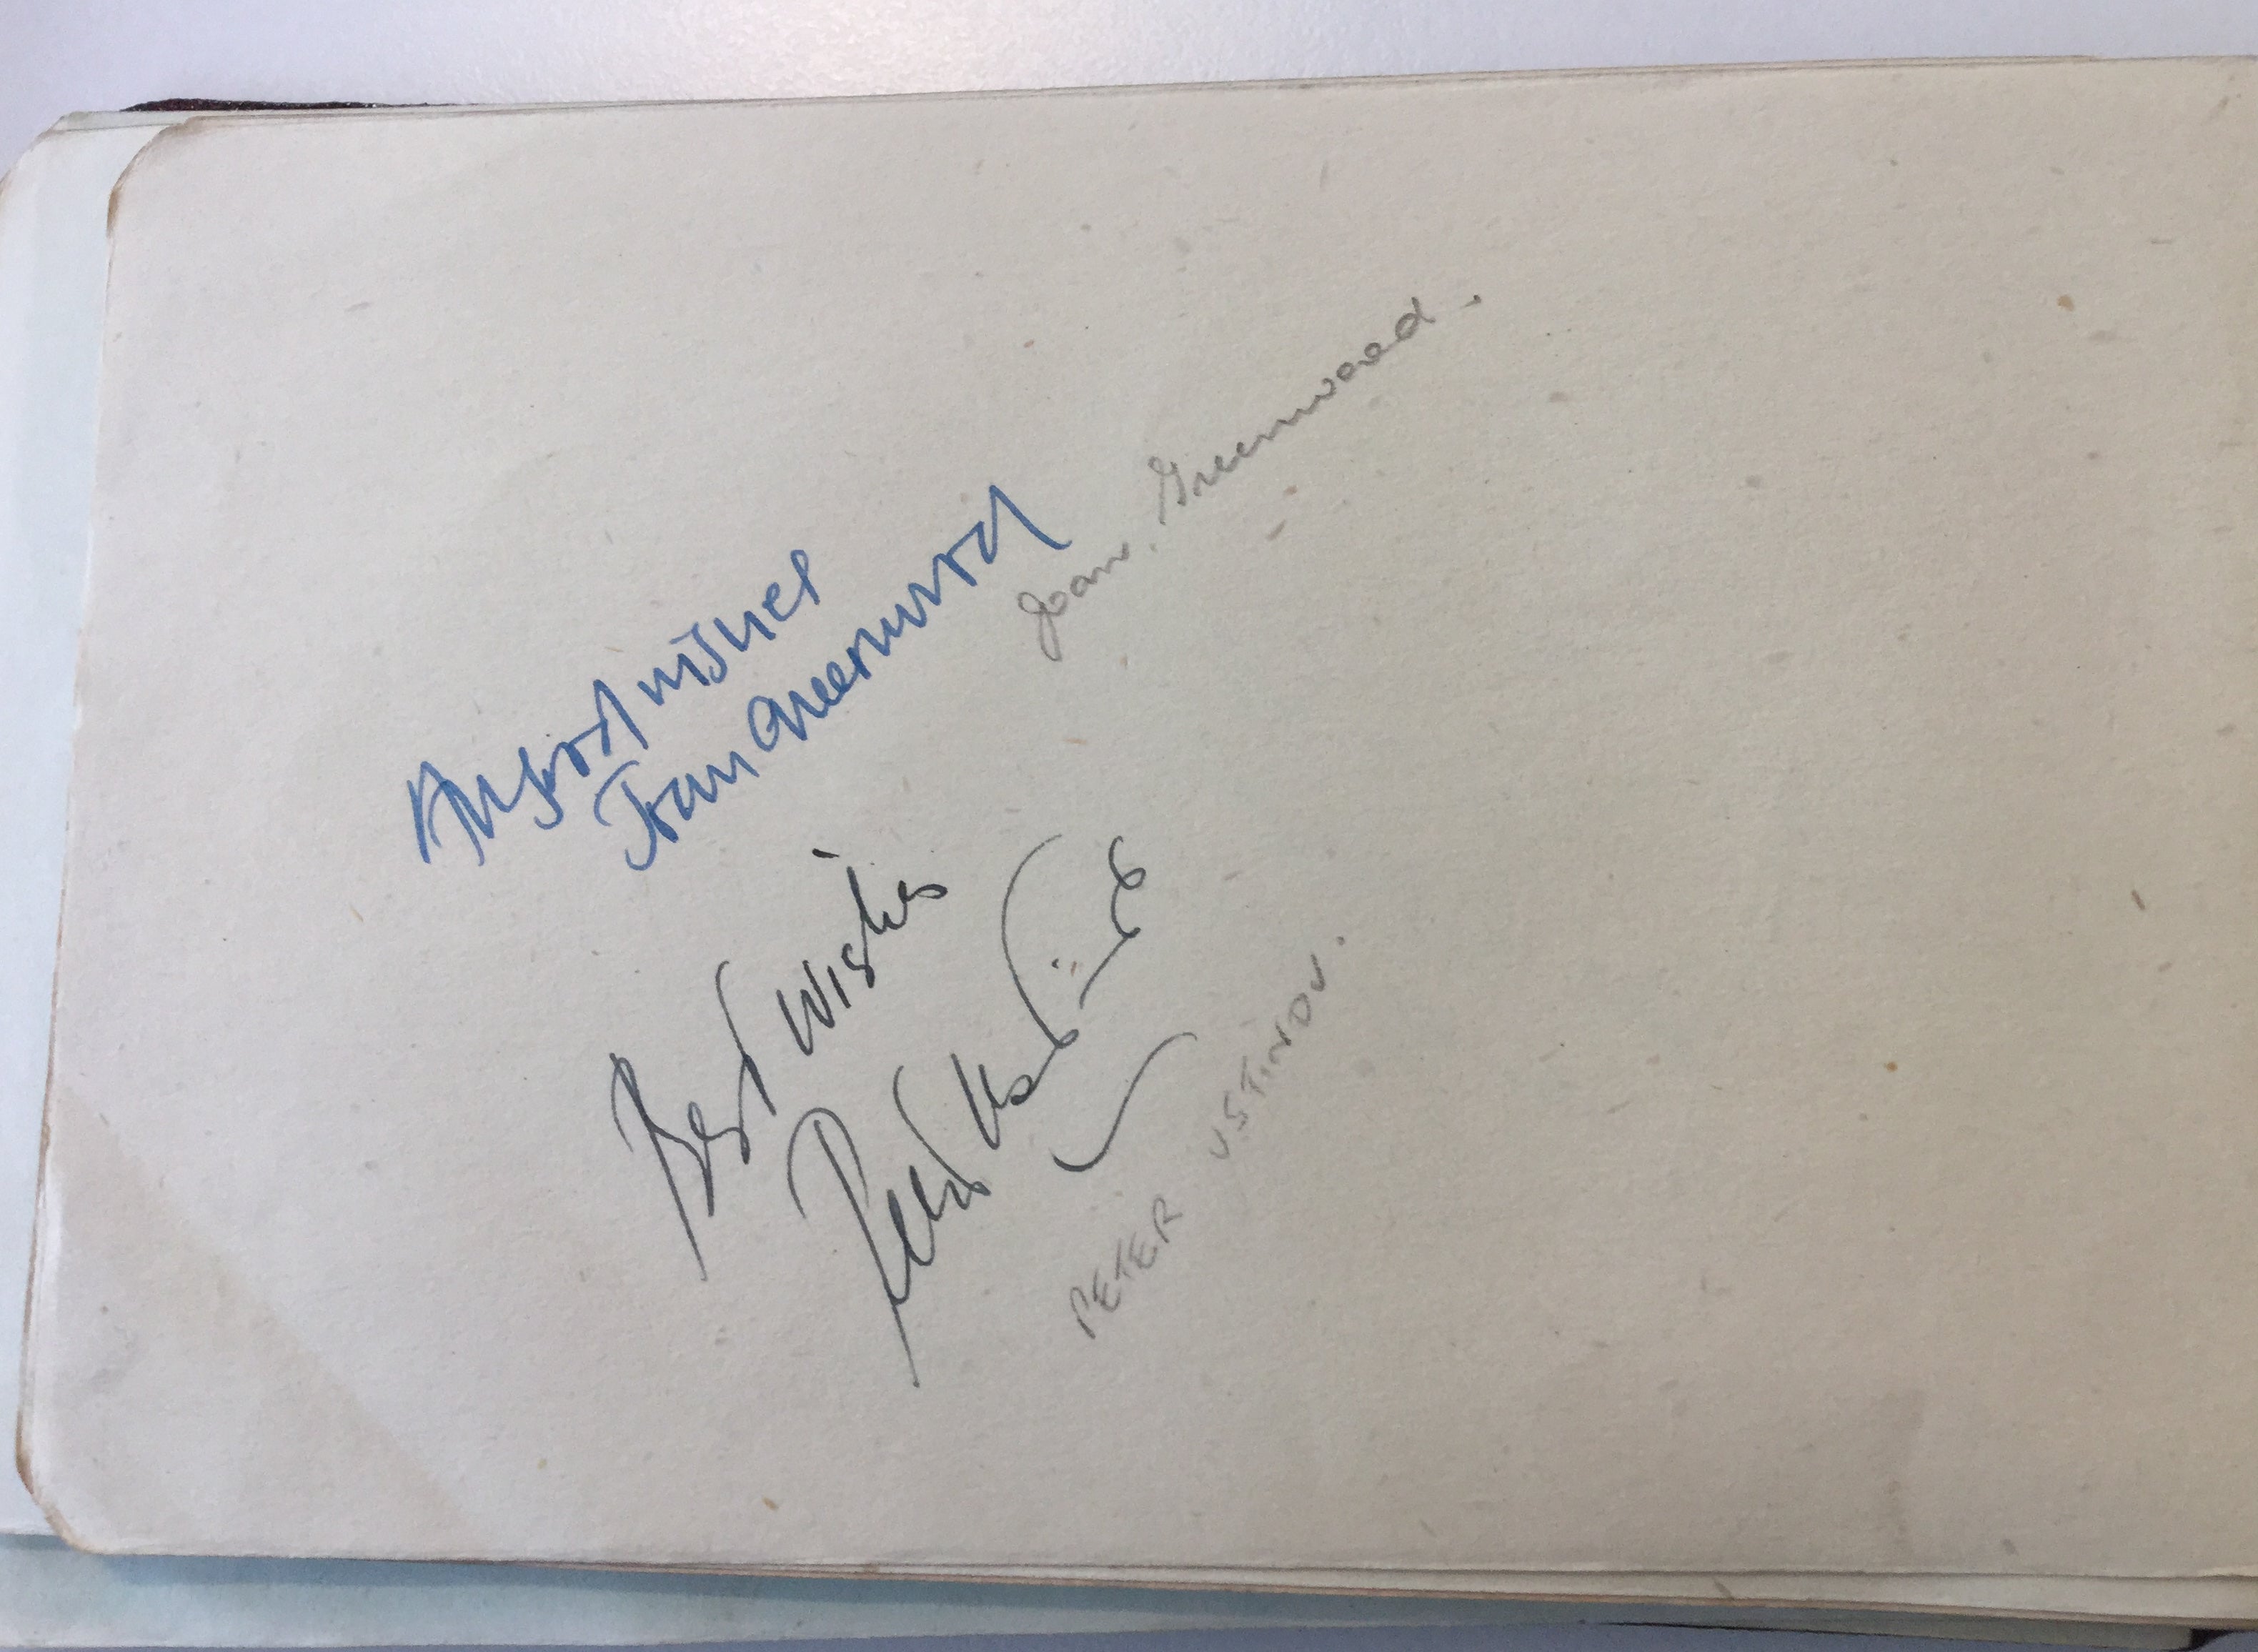 All good wishes
Joan Greenwood
Joan. Greenwood.
Best Wishes
Peter Ustinov
PETER USTINOV.